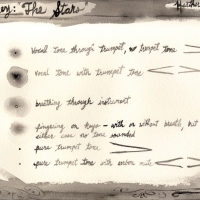 Key: The Stars
Vocal tone through trumpet, no trumpet tone
vocal tone with trumpet tone
breathing through instrument
fingering on keys - with or without breath, but
either case no tone sounded
pure trumpet tone
pure trumpet tone with harmon mute